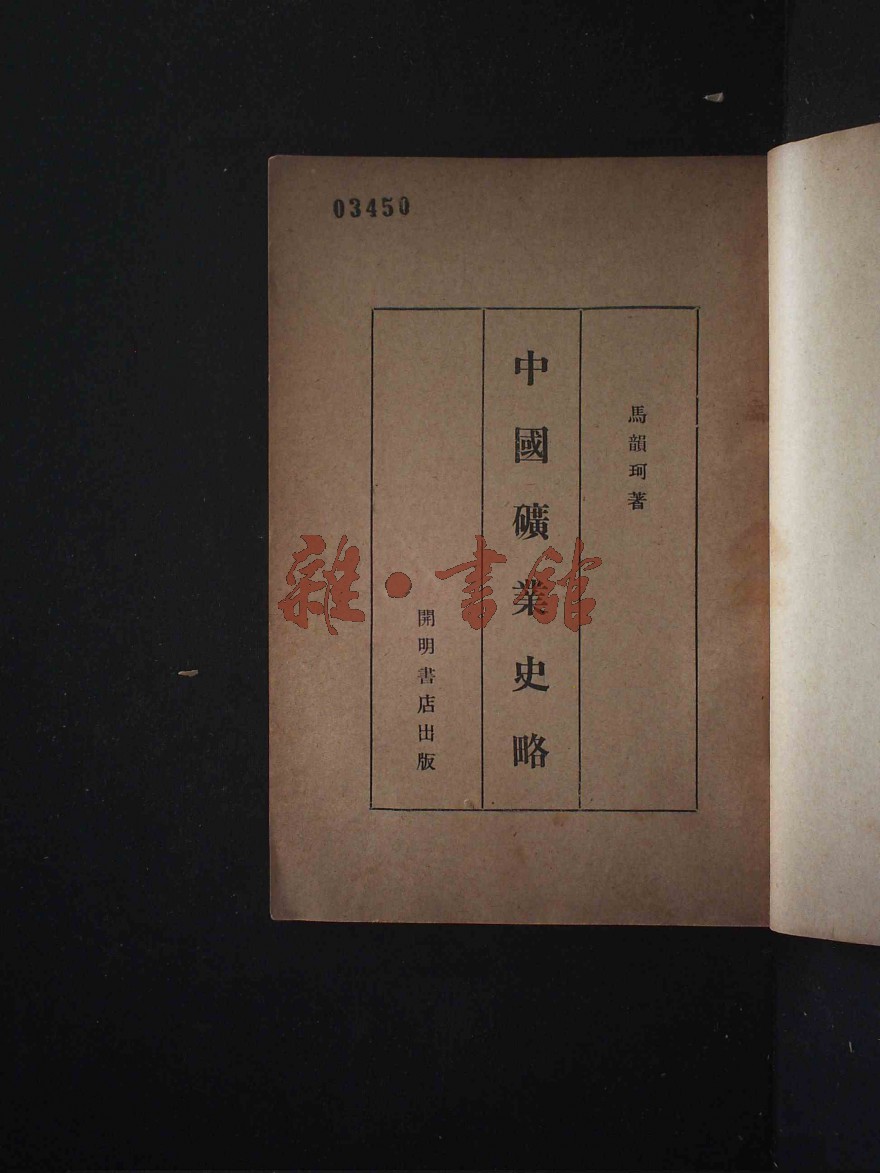 03450
馬韻珂著
中國礦業史略
開明書店出版
雜·書館